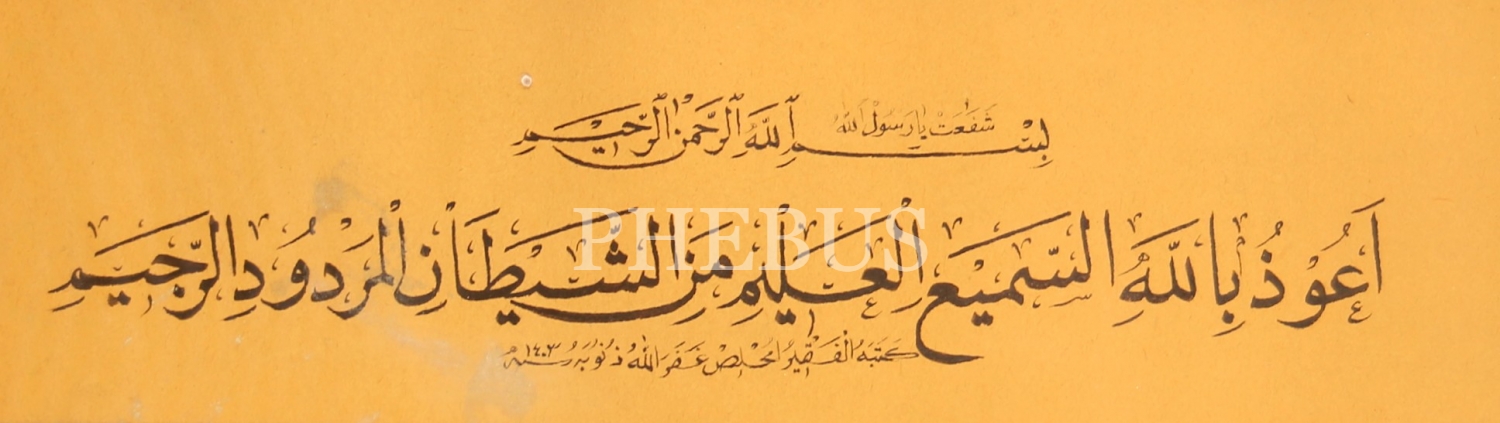 شَفَعَتْ يَا رَسُولَ اللّٰه
بِسْمِ اللَّهِ الرَّحْمٰنِ الرَّحِيمِ
PHEBUS
اَعُوذُ بِاللَّهِ السَّمِيعِ الْعَلِيمِ مِنَ الشَّيْطَانِ الْمَرْدُودِ الرَّجِيمِ
كَتَبَهُ الْفَقِيرُ مُخْلِصْ غَفَرَ اللّٰهُ ذُنُوبَهُ سنه ١٤٠٣